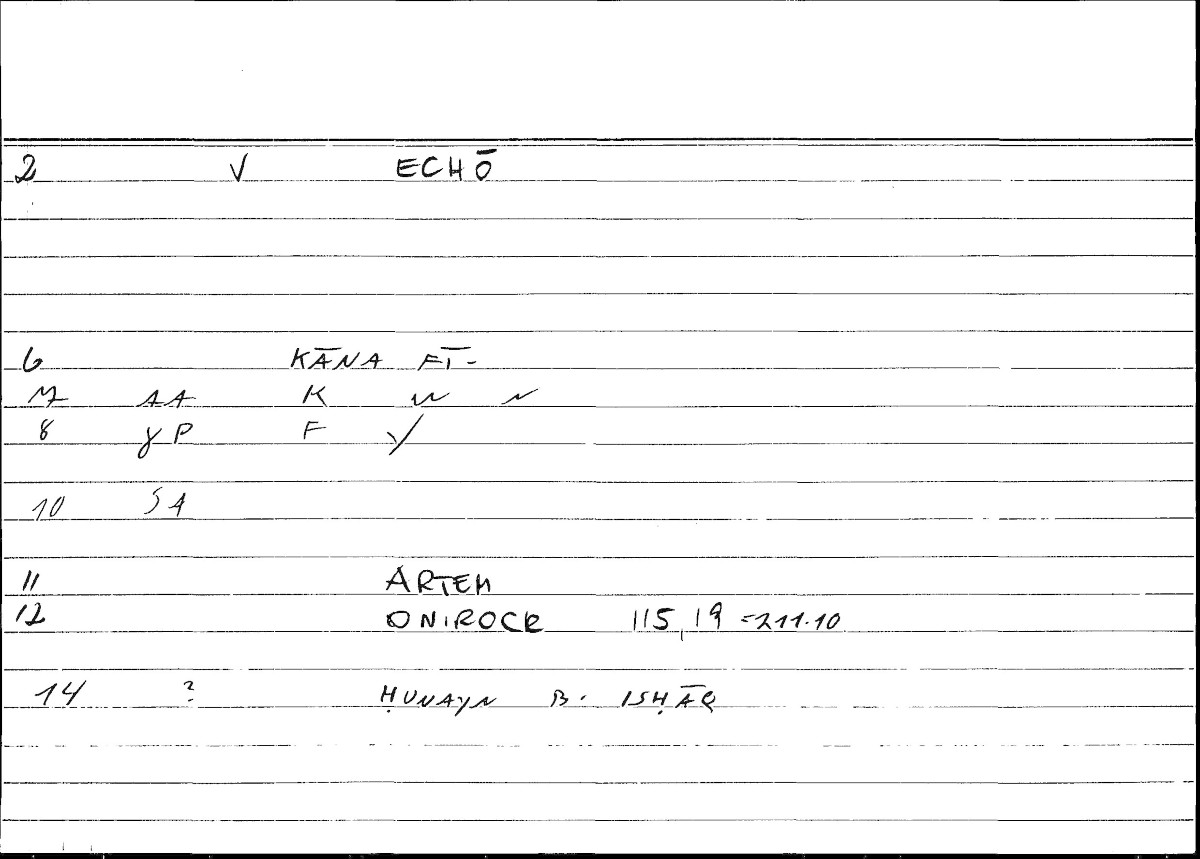 2 V ECHŌ
6 KĀNA FĪ-
8 γP F √
10 SA
11 ARTEM
12 ONIROCR 115,19 =211.10
14 ? ḤUNAYN B. ISḤĀQ